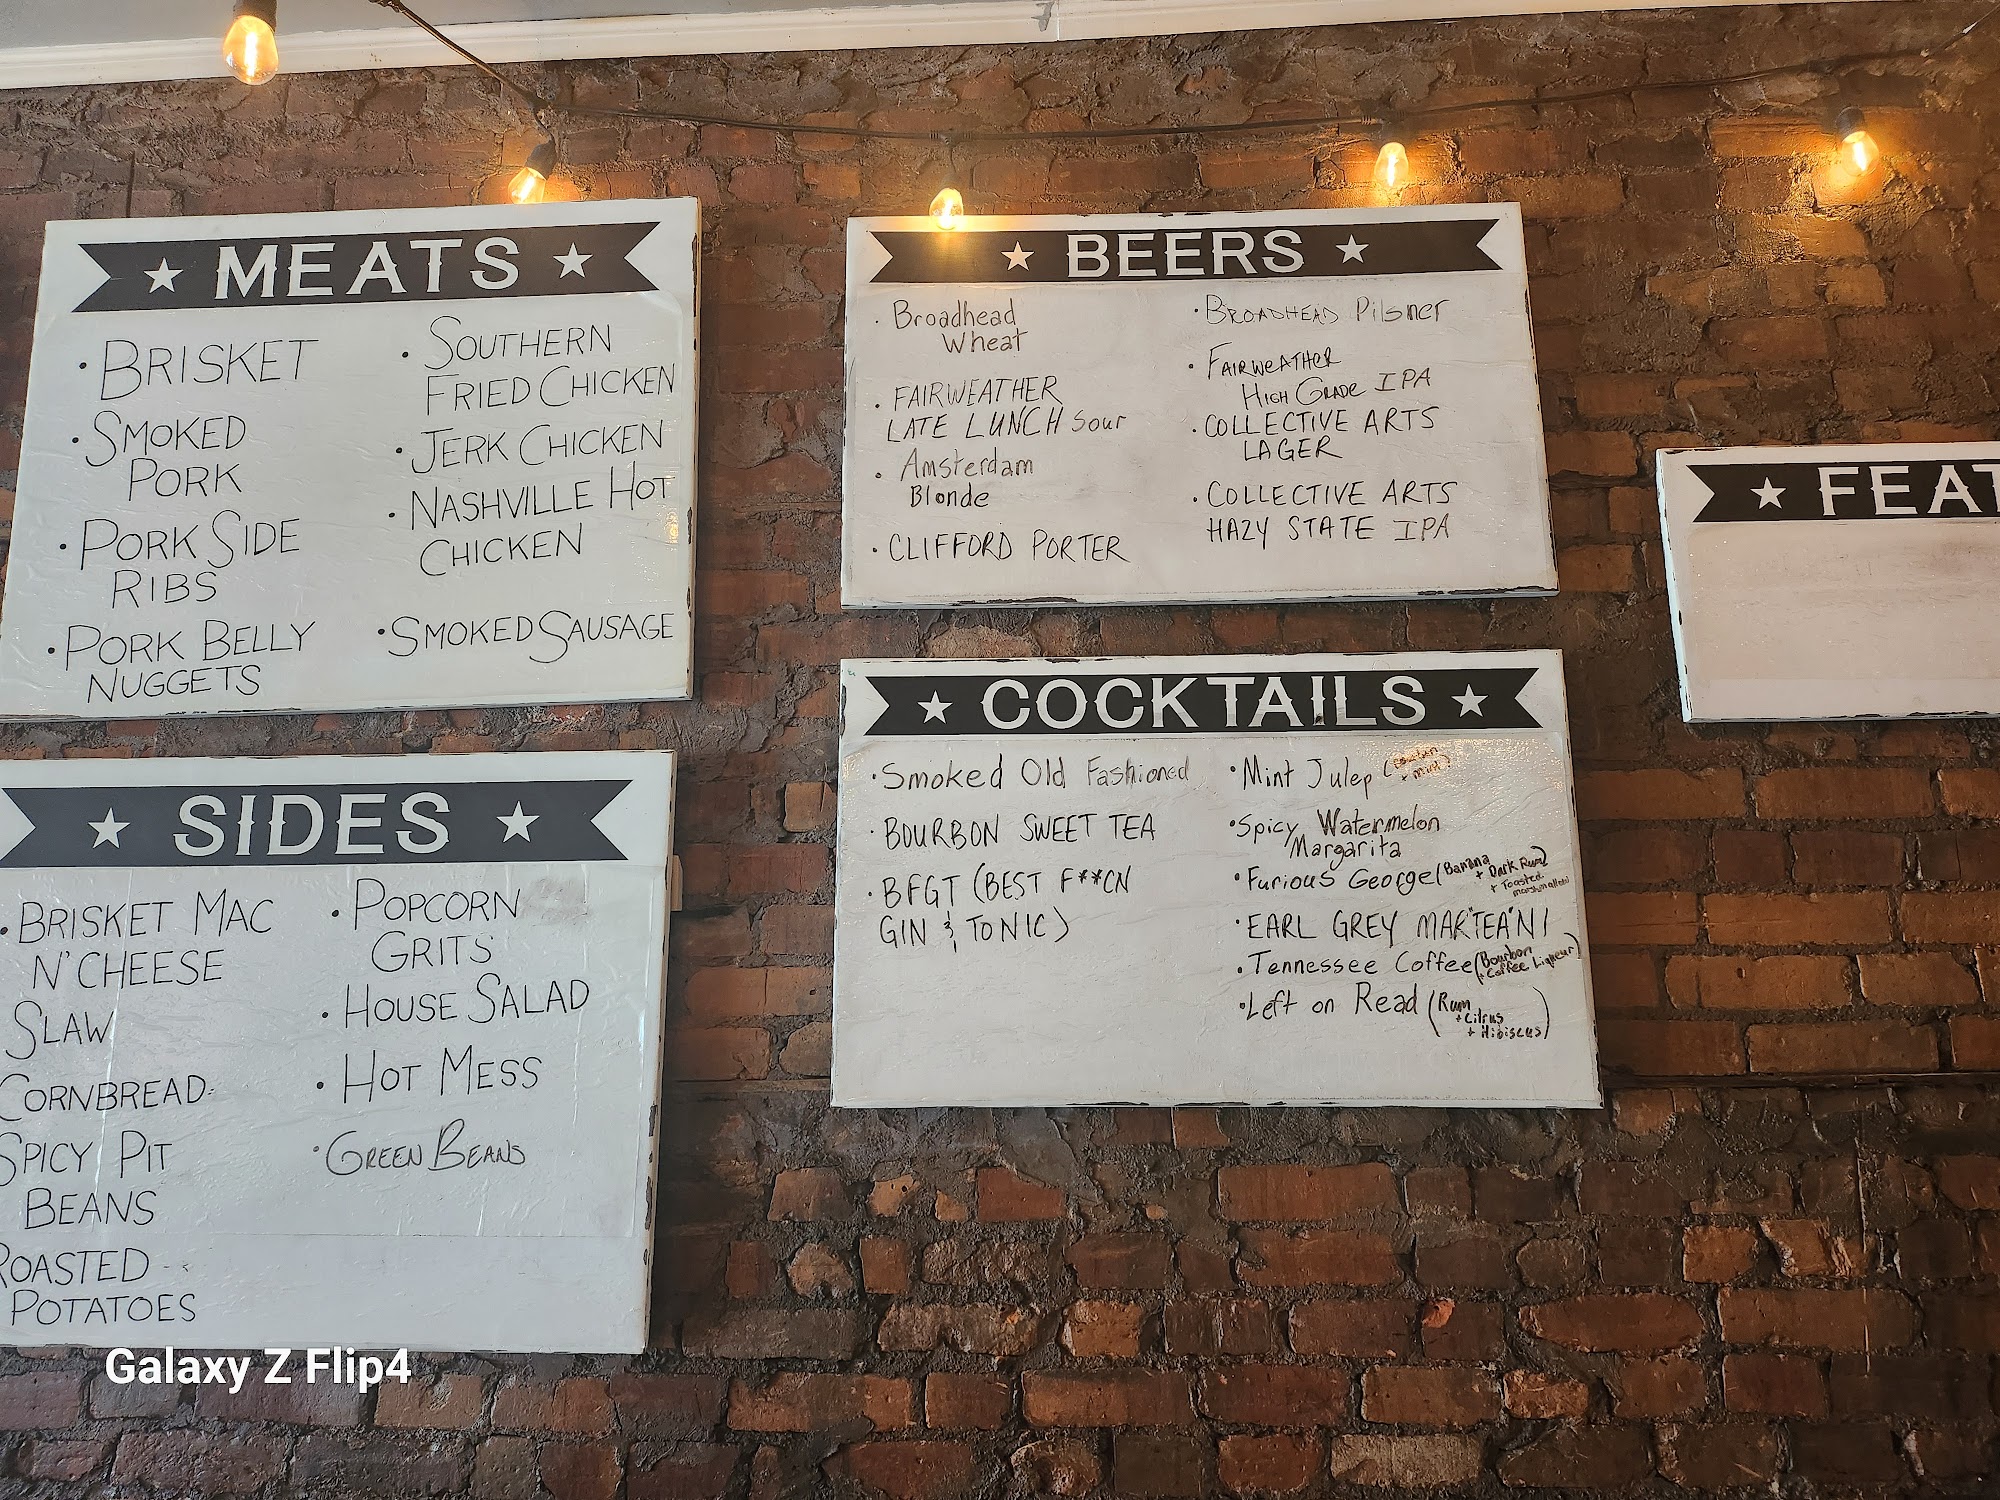 MEATS
• BRISKET
• SMOKED
PORK
• PORK SIDE
RIBS
• PORK BELLY
NUGGETS
• SOUTHERN
FRIED CHICKEN
• JERK CHICKEN
• NASHVILLE HOT
CHICKEN
• SMOKED SAUSAGE
SIDES
• BRISKET MAC
N' CHEESE
SLAW
CORNBREAD
SPICY PIT
BEANS
ROASTED
POTATOES
• POPCORN
GRITS
• HOUSE SALAD
• HOT MESS
• GREEN BEANS
BEERS
• Broadhead
Wheat
• FAIRWEATHER
LATE LUNCH Sour
• Amsterdam
Blonde
• CLIFFORD PORTER
• BROADHEAD Pilsner
• FAIRWEATHER
HIGH GRADE IPA
• COLLECTIVE ARTS
LAGER
• COLLECTIVE ARTS
HAZY STATE IPA
COCKTAILS
• Smoked Old Fashioned
• BOURBON SWEET TEA
• BFGT (BEST F**CN
GIN & TONIC)
• Mint Julep (Bourbon
+ mint)
• Spicy Watermelon
Margarita
• Furious George (Banana
+ Dark Rum
+ Toasted
marshmallow)
• EARL GREY MAR"TEA"NI
• Tennessee Coffee (Bourbon
+ Coffee Liqueur)
• Left on Read (Rum
+ Citrus
+ Hibiscus)
FEAT
Galaxy Z Flip4